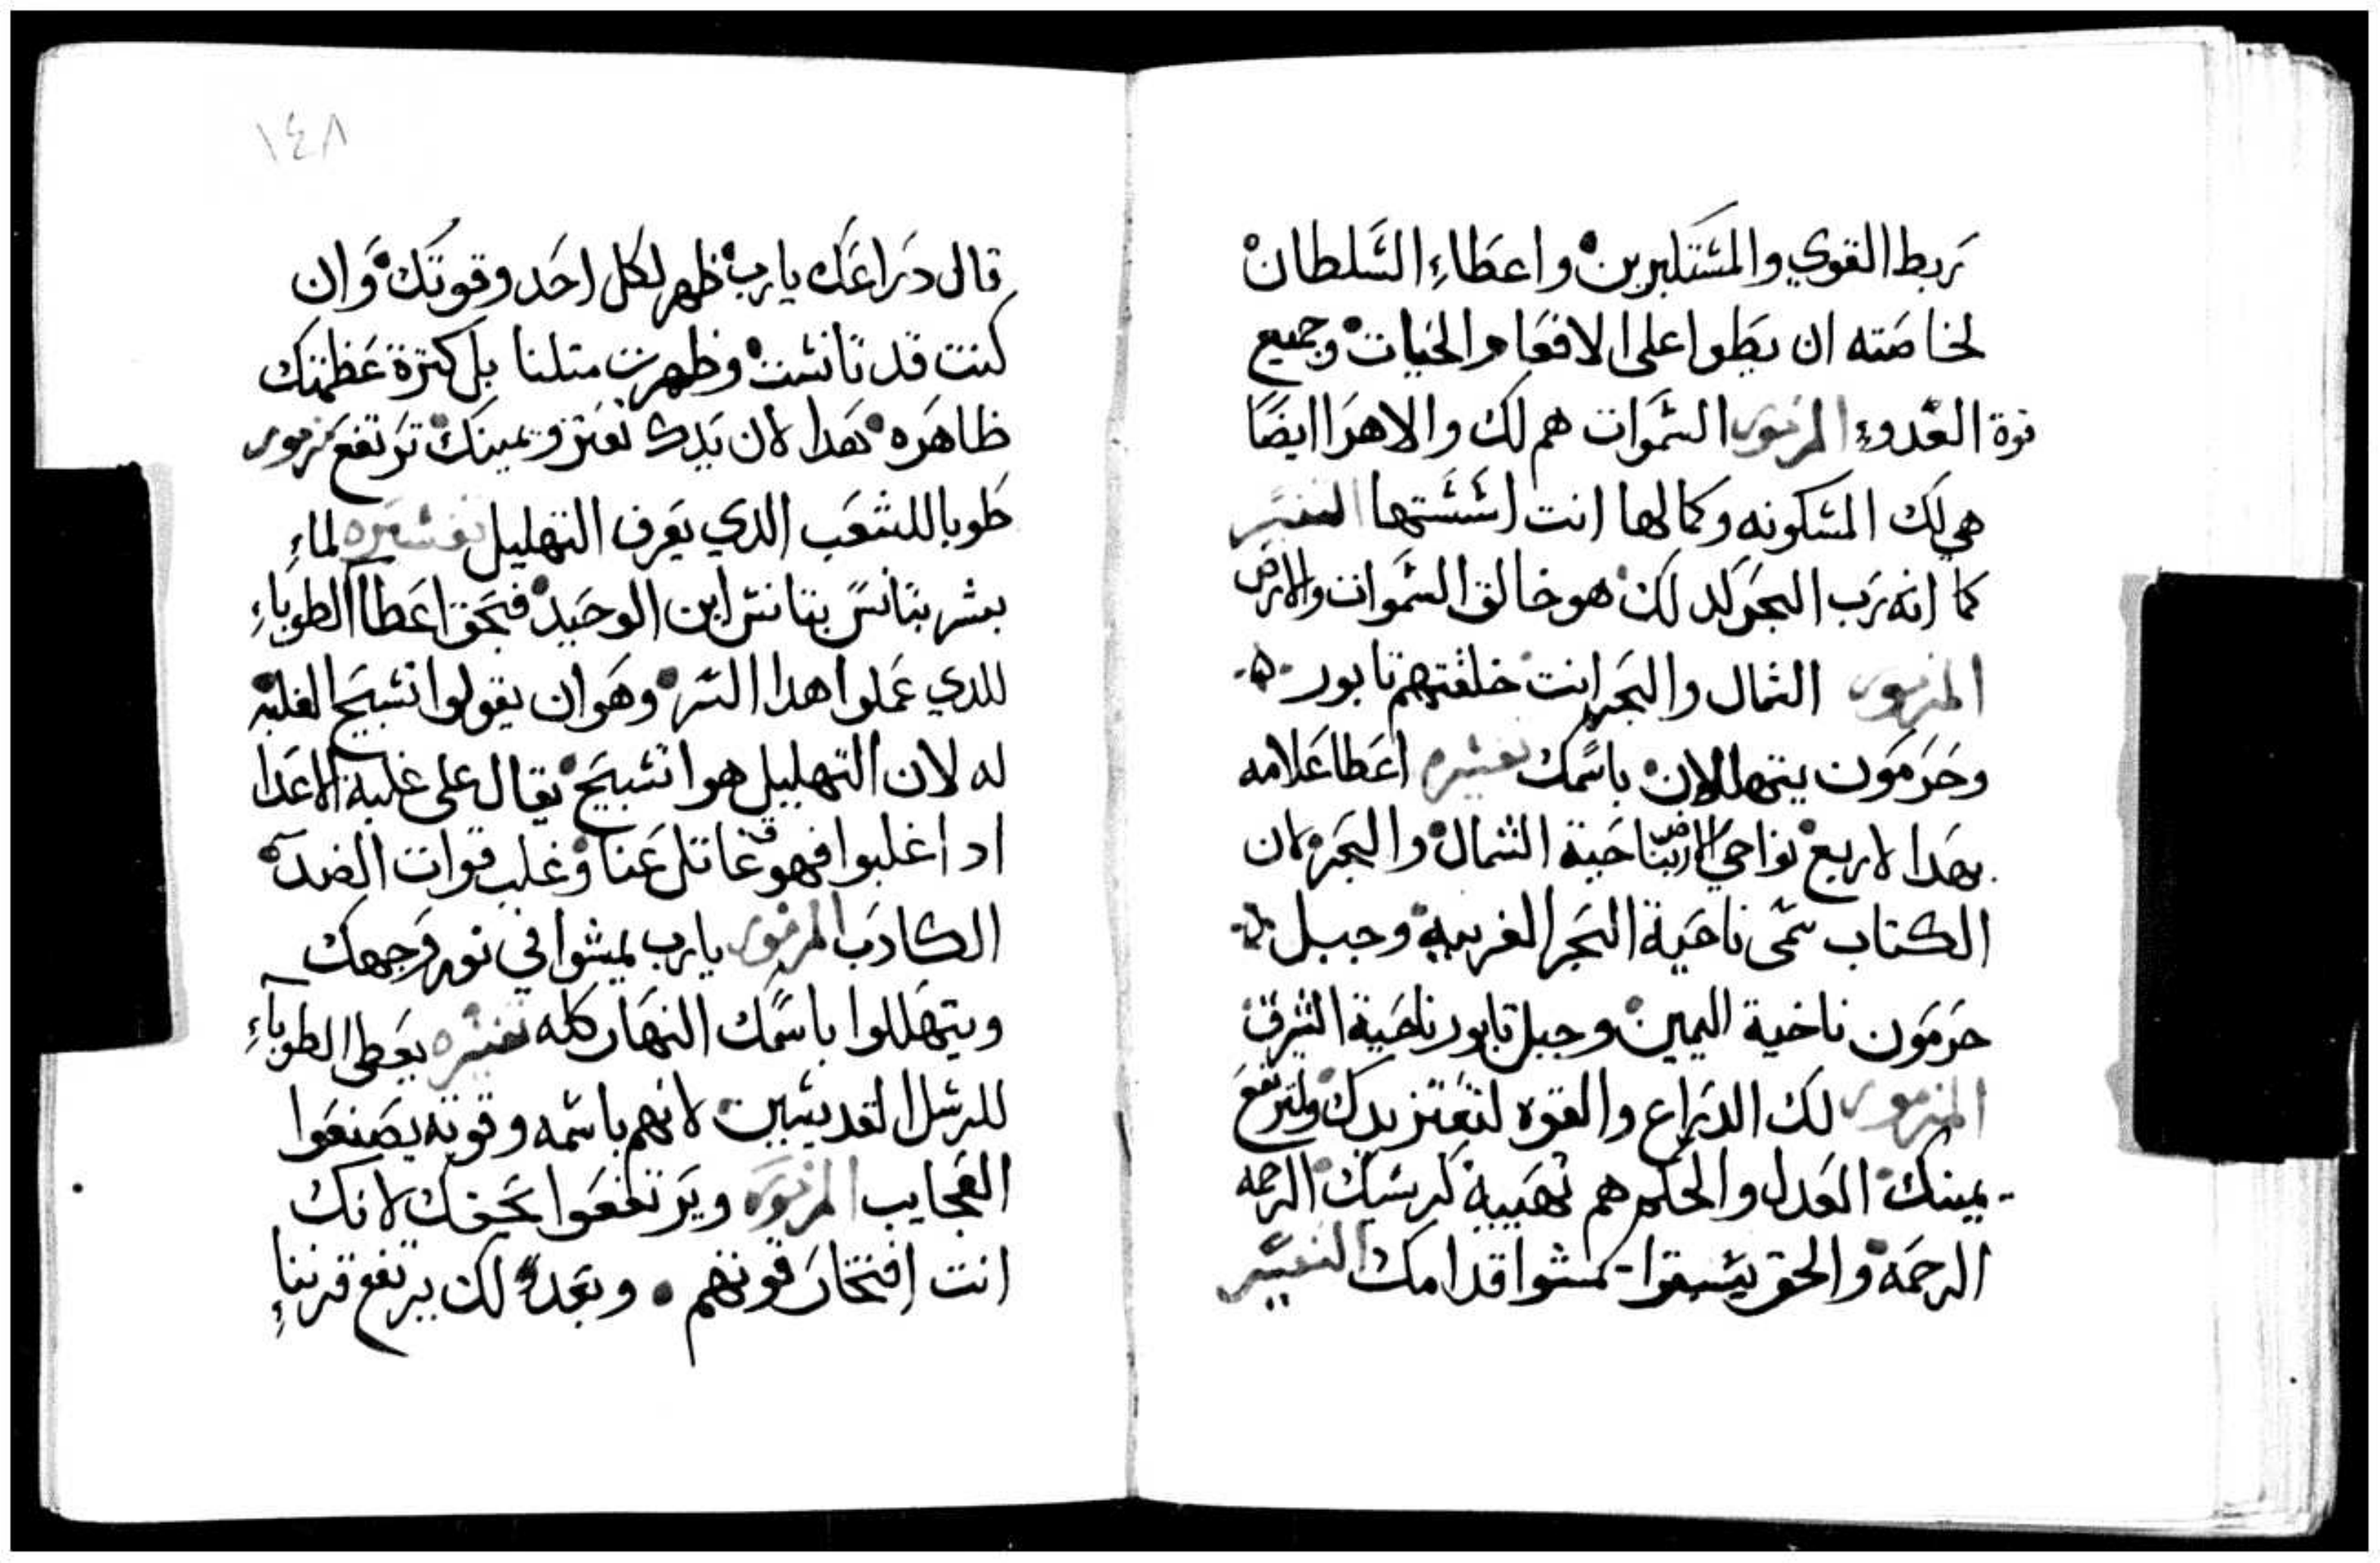 ربط القوي والمستكبرين واعطاء السلطان
لخاصته ان يطوا على الافعا والحيات وجميع
قوة العدوء المزمور السموات هم لك والارض ايضا
هي لك المسكونه وكمالها انت اسستها التفسير
كما انه رب البحر كدلك هو خالق السموات والارض
المزمور الشمال والبحر انت خلقتهم تابور
وحرمون يتهللان باسمك تفسيره اعطا علامه
بهدا لاربع نواحي الارض ناحية الشمال والبحر لان
الكتاب سمى ناحية البحر الغربيه وجبل
حرمون ناحية اليمين وجبل تابور ناحية الشرق
المزمور لك الدراع والقوه لتعتز يدك ولترتفع
يمينك العدل والحكم هم تهيية كرسيك الرحمه
الرحمة والحق يسبقوا يمشوا قدامك التفسير
١٤٨
قال دراعك يارب ظهر لكل احد وقوتك وان
كنت قد تانست وظهرت متلنا بل كترة عظمتك
ظاهره بهدا لان يدك تعتز ويمينك ترتفع مزمور
طوبا للشعب الدي يعرف التهليل تفسيره لماء
بشر بتانس ابن الوحيد فبحق اعطا الطوباء
للدي عملوا هدا السر وهو ان يقولوا تسبيح الغلبه
له لان التهليل هو تسبيح يقال على غلبة الاعدا
ادا غلبوا فهو قاتل عنا وغلب قوات الضد
الكادب المزمور يارب يمشوا في نور وجهك
ويتهللوا باسمك النهار كله تفسيره يعطى الطوباء
للرسل القديسين لانهم باسمه وقوته يصنعوا
العجايب المزمور ويرتفعوا بحقك لانك
انت افتخار قوتهم وبعدلك يرتفع قرننا